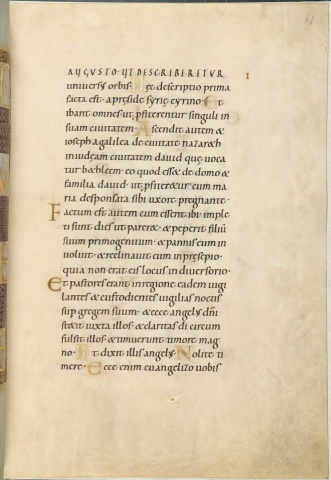 AUGUSTO UT DESCRIBERETUR
universus orbis. Hęc descriptio prima
facta est apręside syrię cyrino. Et
ibant omnes ut, pfiterentur singuli in
suam civitatem. Ascendit autem &
ioseph agalilea de civitate nazareth
iniudęam civitatem david quę voca
tur b&hleem. eo quod ess& de domo &
familia david. ut, pfiter&ur cum ma
ria desponsata sibi uxore pregnante.
Factum est autem cum essent ibi. imple
ti sunt dies ut parer&. & peperit filiū
suum primogenitum. & pannis eum in
volvit. & reclinavit eum in pręsepio.
quia non erat eis locus in diversorio.
Et pastores erant inregione eadem vigi
lantes & custodientes vigilias noctis
sup gregem suum. & ecce angelus dn̄i
st&it iuxta illos. & claritas di circum
fulsit illos. & timuerunt timore mag
no. Et dixit illis angelus. Nolite ti
mere. Ecce enim euangelizo vobis